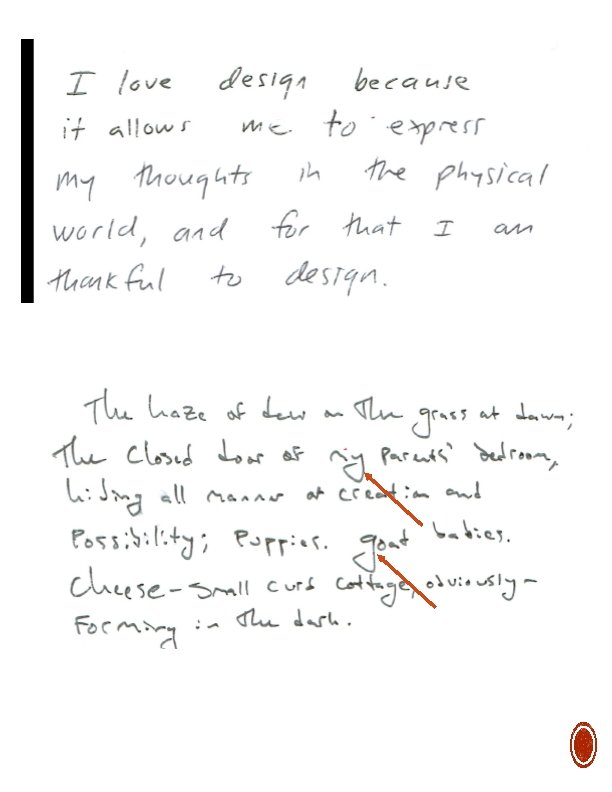 I love design because
it allows me to express
my thoughts in the physical
world, and for that I am
thankful to design.
The haze of dew on the grass at dawn;
The closed door of my parents' bedroom,
hiding all manner of creation and
Possibility; Puppies. goat babies.
Cheese-small curd cottage, obviously-
Forming in the dark.